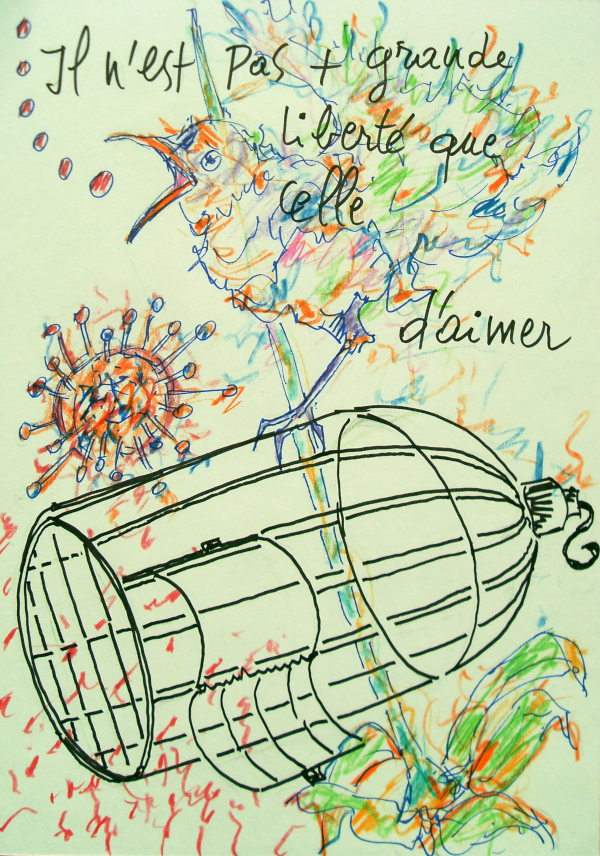 Il n'est pas + grande
liberté que
celle
d'aimer